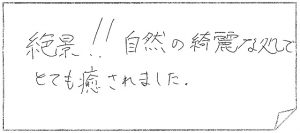 絶景!! 自然の綺麗な処して
とても癒されました.